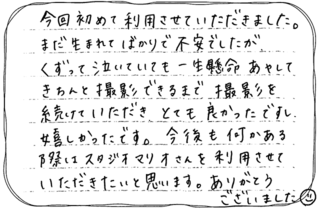 今回初めて利用させていただきました。
まだ生まれてばかりで不安でしたが
くずって泣いていても一生懸命あやして
きちんと撮影できるまで撮影を
続けていただき、とても良かったですし
嬉しかったです。今後も何かある
際はスタジオマリオさんを利用させて
いただきたいと思います。ありがとう
ございました